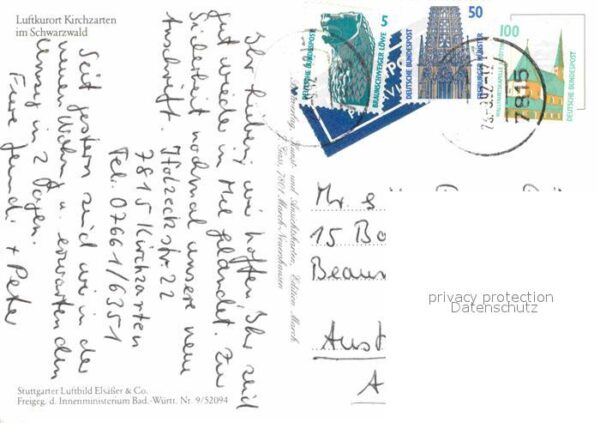 Luftkurort Kirchzarten
im Schwarzwald
Ihr Lieben, wir hoffen, Ihr seid
gut wieder in Mel gelandet. Zur
Sicherheit nochmal unsere neue
Anschrift:
22
7815 Kirchzarten
Tel. 07661/6351
Seit gestern sind wir in der
neuen Wohng u. erwarten den
Umzug in 2 Tagen.
Eure + Peter
Stuttgarter Luftbild Elsäßer & Co.
Freigeg. d. Innenministerium Bad.-Württ. Nr. 9/52094
Kunst- und Ansichtskarten, Edition March
7801 March-Neuershausen
5
DEUTSCHE BUNDESPOST
BRAUNSCHWEIGER LÖWE
50
DEUTSCHE BUNDESPOST
FREIBURGER MÜNSTER
100
WALLFAHRTSKAPELLE ALTÖTTING
DEUTSCHE BUNDESPOST
7815
Mr. &
15 Bo
Beau
Aust
A
privacy protection
Datenschutz